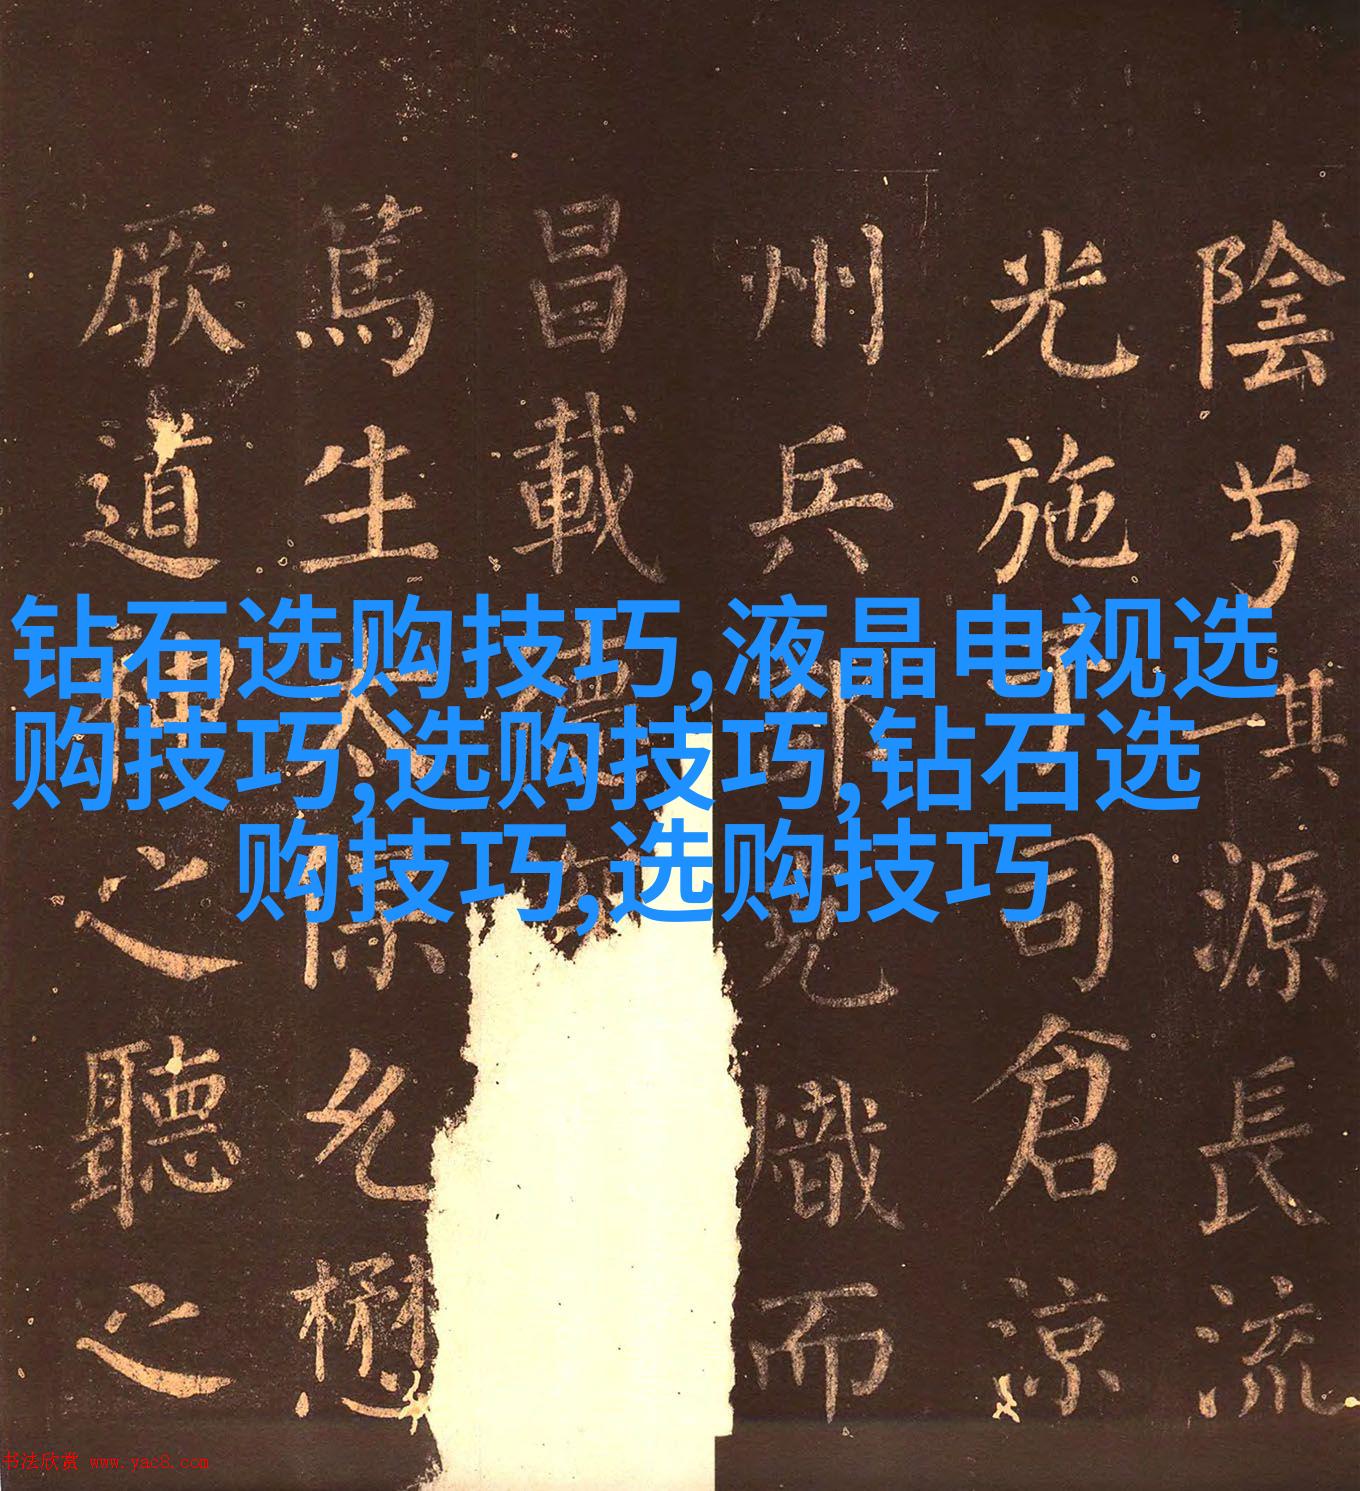 钻石选购技巧,液晶电视选
购技巧,选购技巧,钻石选
购技巧,选购技巧
陰一其源長流
光施司倉涼
州兵熾而
昌載德
篤生太保允懋
厥道神之聽之
书法欣赏 www.yac8.com